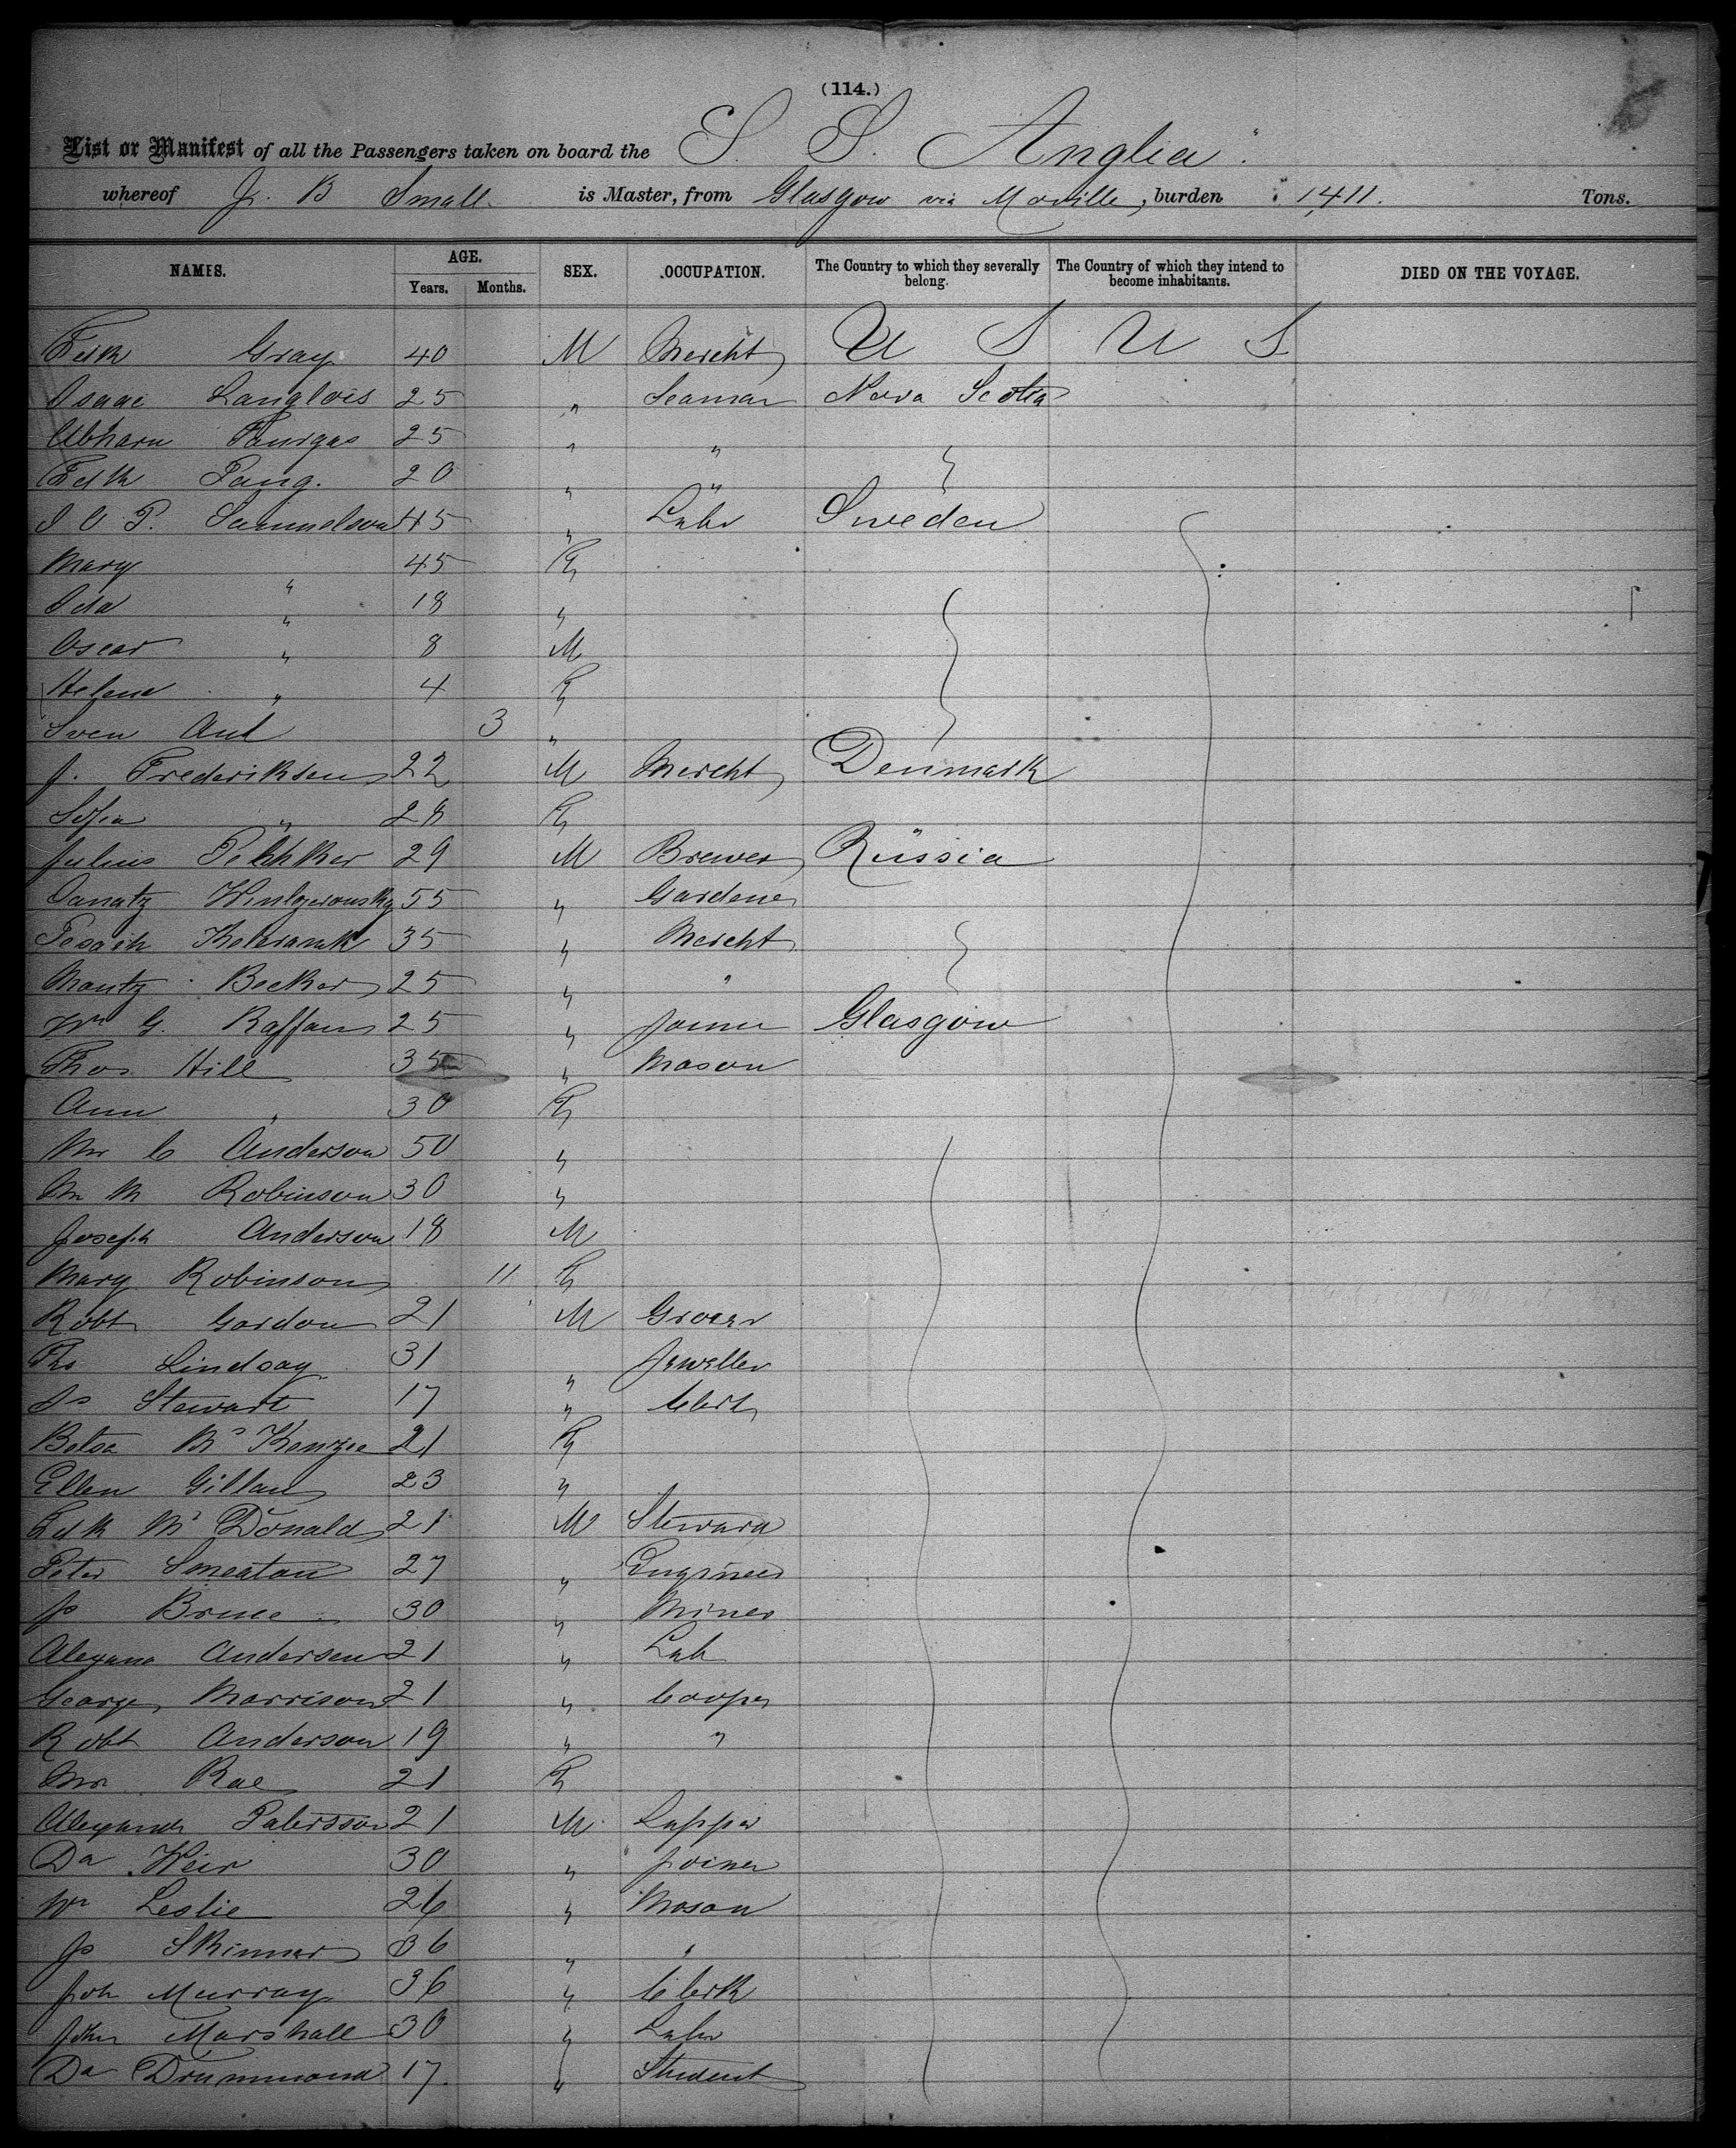 (114.)
List or Manifest of all the Passengers taken on board the S. S. Anglia
whereof J. B Small is Master, from Glasgow via Moville, burden 1411. Tons.
NAMES. AGE. SEX. OCCUPATION. The Country to which they severally belong. The Country of which they intend to become inhabitants. DIED ON THE VOYAGE.
Years. Months.
Fedk Gray 40 M Mercht U S U S
Isaac Langlois 25 " Seaman Nova Scotia
25 " "
Fedk 20 " "
Samuelson 45 " Labr Sweden
Mary " 45 F
Ida " 18 "
Oscar " 8 M
Helena " 4 F
Sven Aut 3 "
J. Frederiksen 22 M Mercht Denmark
Sofia " 28 F
Julius 29 M Brewer Russia
55 " Gardener
35 " Mercht
Becker 25 " "
Wm G. Raffan 25 " Joiner Glasgow
Thos Hill 35 " Mason
Ann " 30 F
Mrs C Anderson 50 "
M Robinson 30 "
Joseph Anderson 18 M
Mary Robinson 11 F
Robt Gordon 21 M Grocer
Ths Lindsay 31 " Jeweller
Js Stewart 17 " Clerk
Betsa Mc Kenzie 21 F
Ellen Gillan 23 "
Fedk Mc Donald 21 M Steward
Peter Smeaton 27 " Engineer
Js Bruce 30 " Miner
Anderson 21 " Lab
George Morrison 21 " Cooper
Robt Anderson 19 " "
Mrs Rae 21 F
Paterson 21 M
Da Weir 30 " Joiner
Wm Leslie 26 " Mason
Js Skinner 36 " "
Joh Murray 36 " Clerk
John Marshall 30 " Labr
Da Drummond 17 " Student